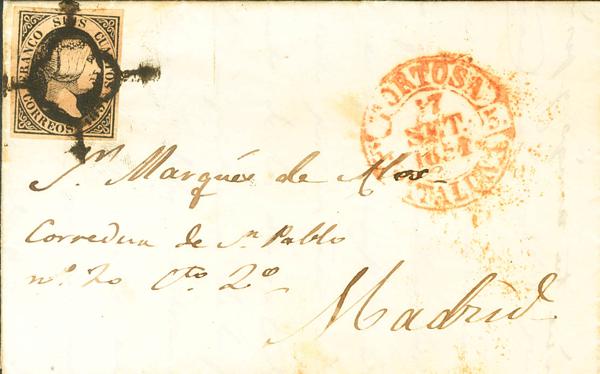 FRANCO SEIS CUARTOS
CORREOS 1851
TORTOSA
17
SET.
1851
CATALUÑA
Sr. Marqués de Alos
Corredera de Sn. Pablo
nº. 20 Cto. 2º
Madrid